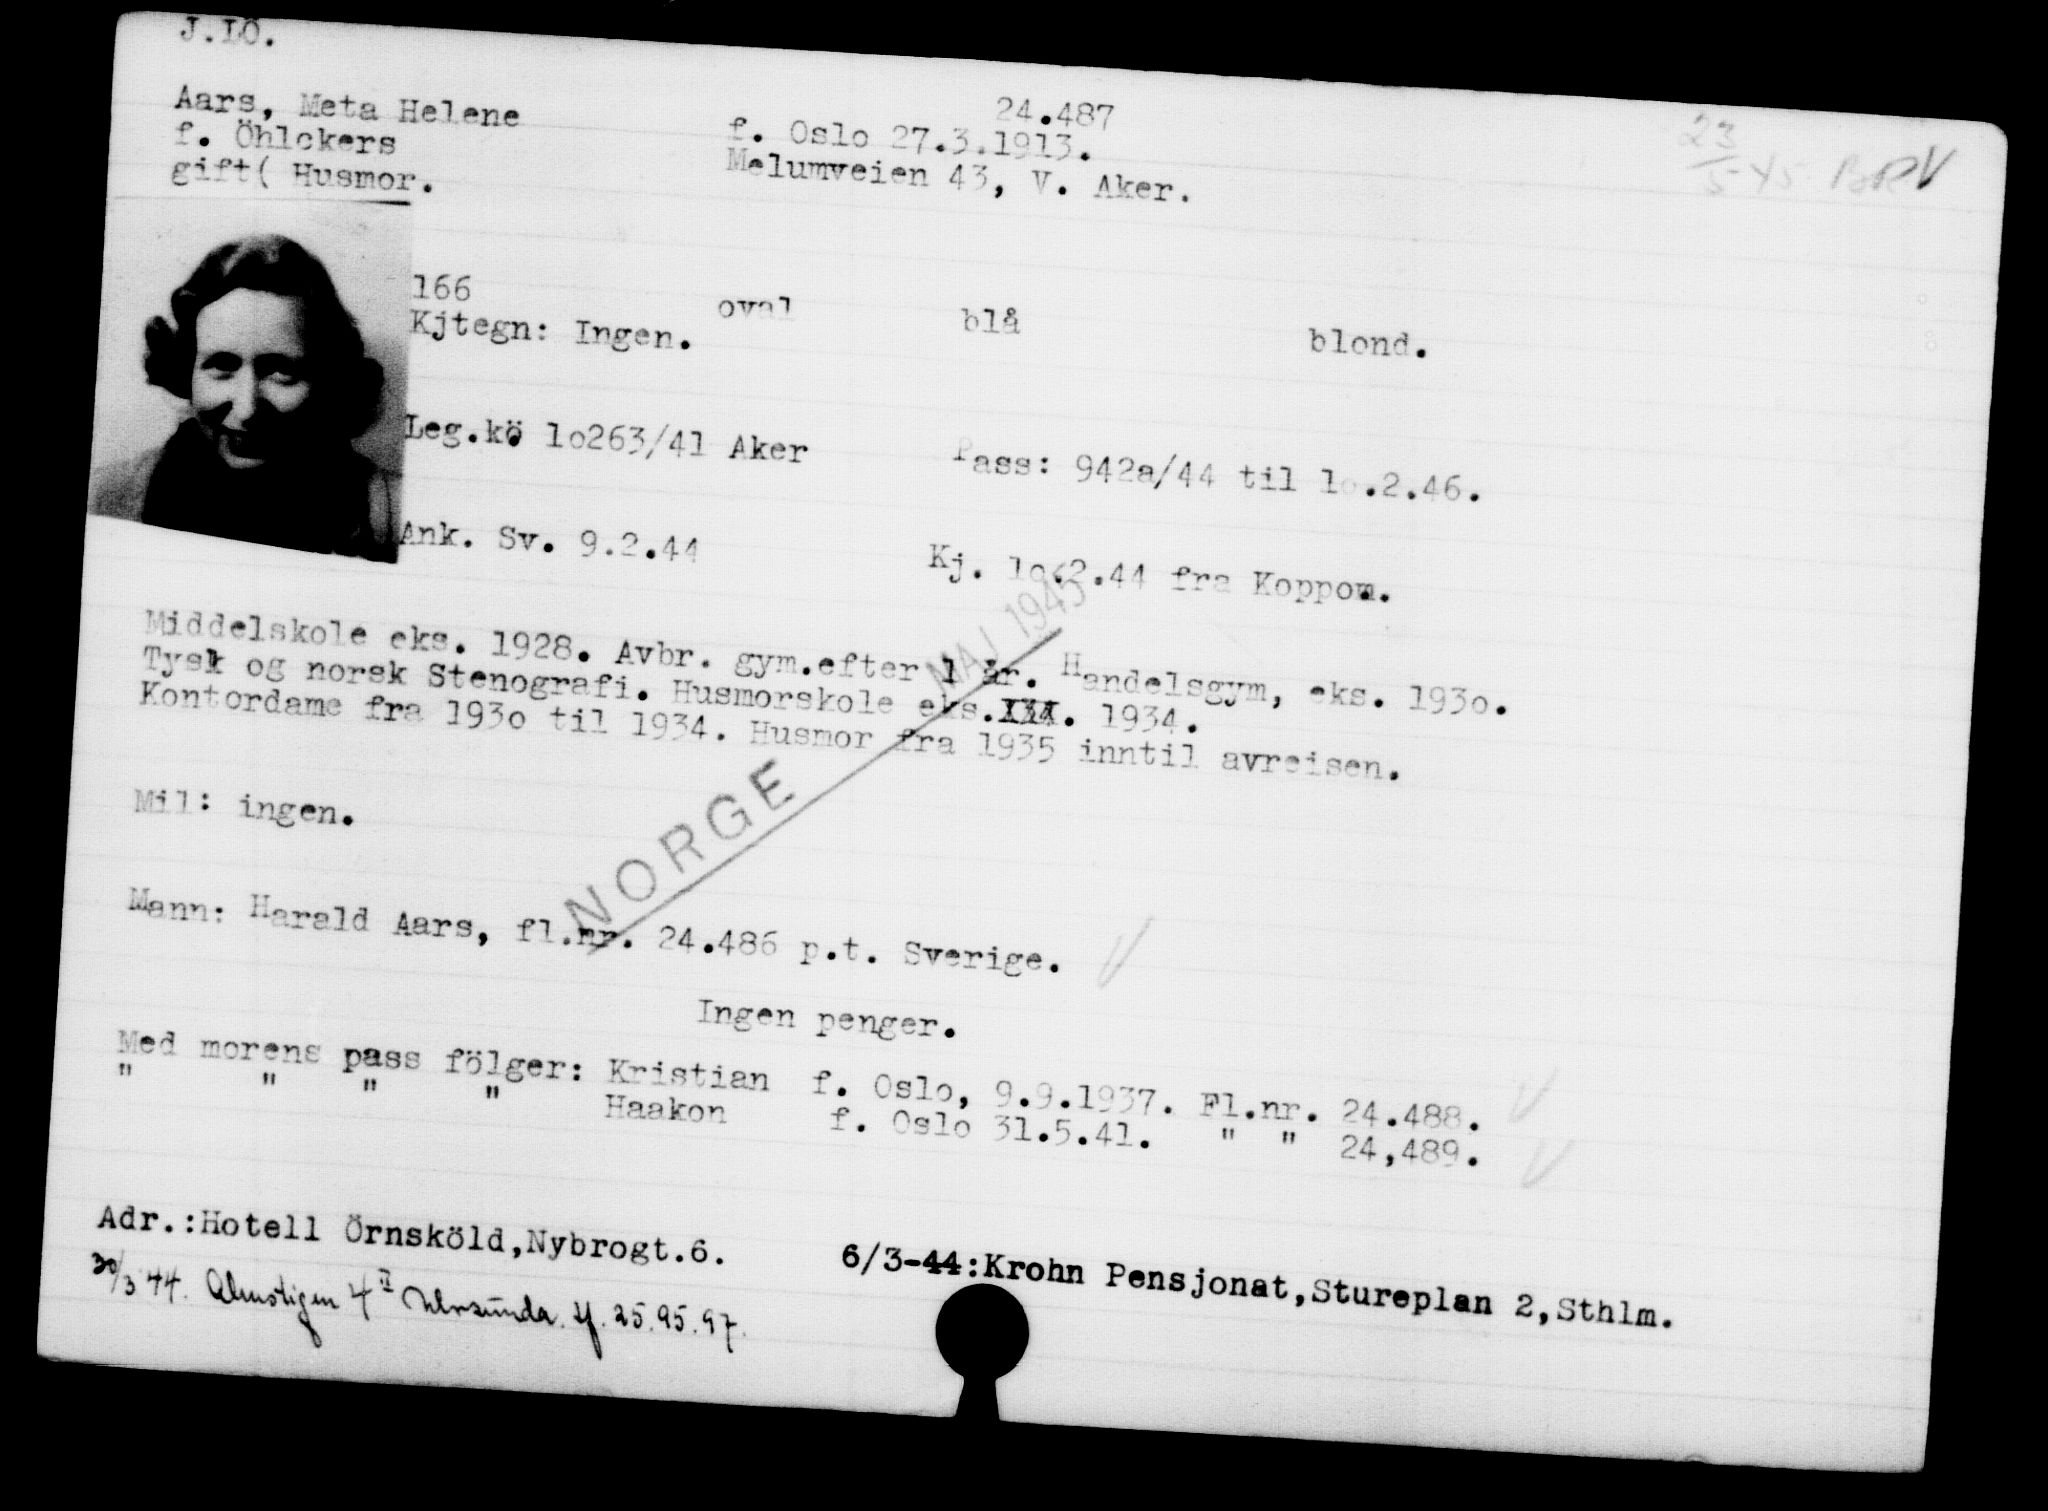 J.LÖ.
24.487
Aars, Meta Helene f. Oslo 27.3.1913.
f. Öhlckers Melumveien 43, V. Aker.
gift( Husmor.
23/5 45
166 oval blå blond.
Kjtegn: Ingen.
Leg.kö lo263/41 Aker Pass: 942a/44 til lo.2.46.
Ank. Sv. 9.2.44 Kj. lo.2.44 fra Koppom.
MAJ 1945
Middelskole eks. 1928. Avbr. gym.efter 1 år. Handelsgym, eks. 193o.
Tysk og norsk Stenografi. Husmorskole eks.XXX. 1934.
Kontordame fra 193o til 1934. Husmor fra 1935 inntil avreisen.
NORGE
Mil: ingen.
Mann: Harald Aars, fl.nr. 24.486 p.t. Sverige.
Ingen penger.
Med morens pass fölger: Kristian f. Oslo, 9.9.1937. Fl.nr. 24.488.
" " " " Haakon f. Oslo 31.5.41. " " 24,489.
Adr.:Hotell Örnsköld,Nybrogt.6. 6/3-44:Krohn Pensjonat,Stureplan 2,Sthlm.
30/3 44. Almstigen 4 II 25.95.97.